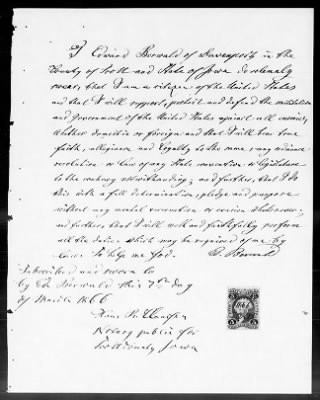 I Edward Berwald of Davenport in the
County of Scott and State of Iowa do solemnly
swear, that I am a citizen of the United States
and that I will support, protect and defend the constitution
and Government of the United States against all enemies,
whether domestic or foreign and that I will bear true
faith, allegiance and loyalty to the same, any ordinance
resolution or law of any State convention or legislature
to the contrary notwithstanding; and further, that I do
this with a full determination, pledge and purpose
without any mental reservation or evasion whatsoever;
and further, that I will well and faithfully perform
all the duties which may be required of me by
law. So help me God.
E. Berwald
Subscribed and sworn to
by Ed. Berwald this 7th day
of March 1866
Claussen
Notary public for
Scott County Iowa